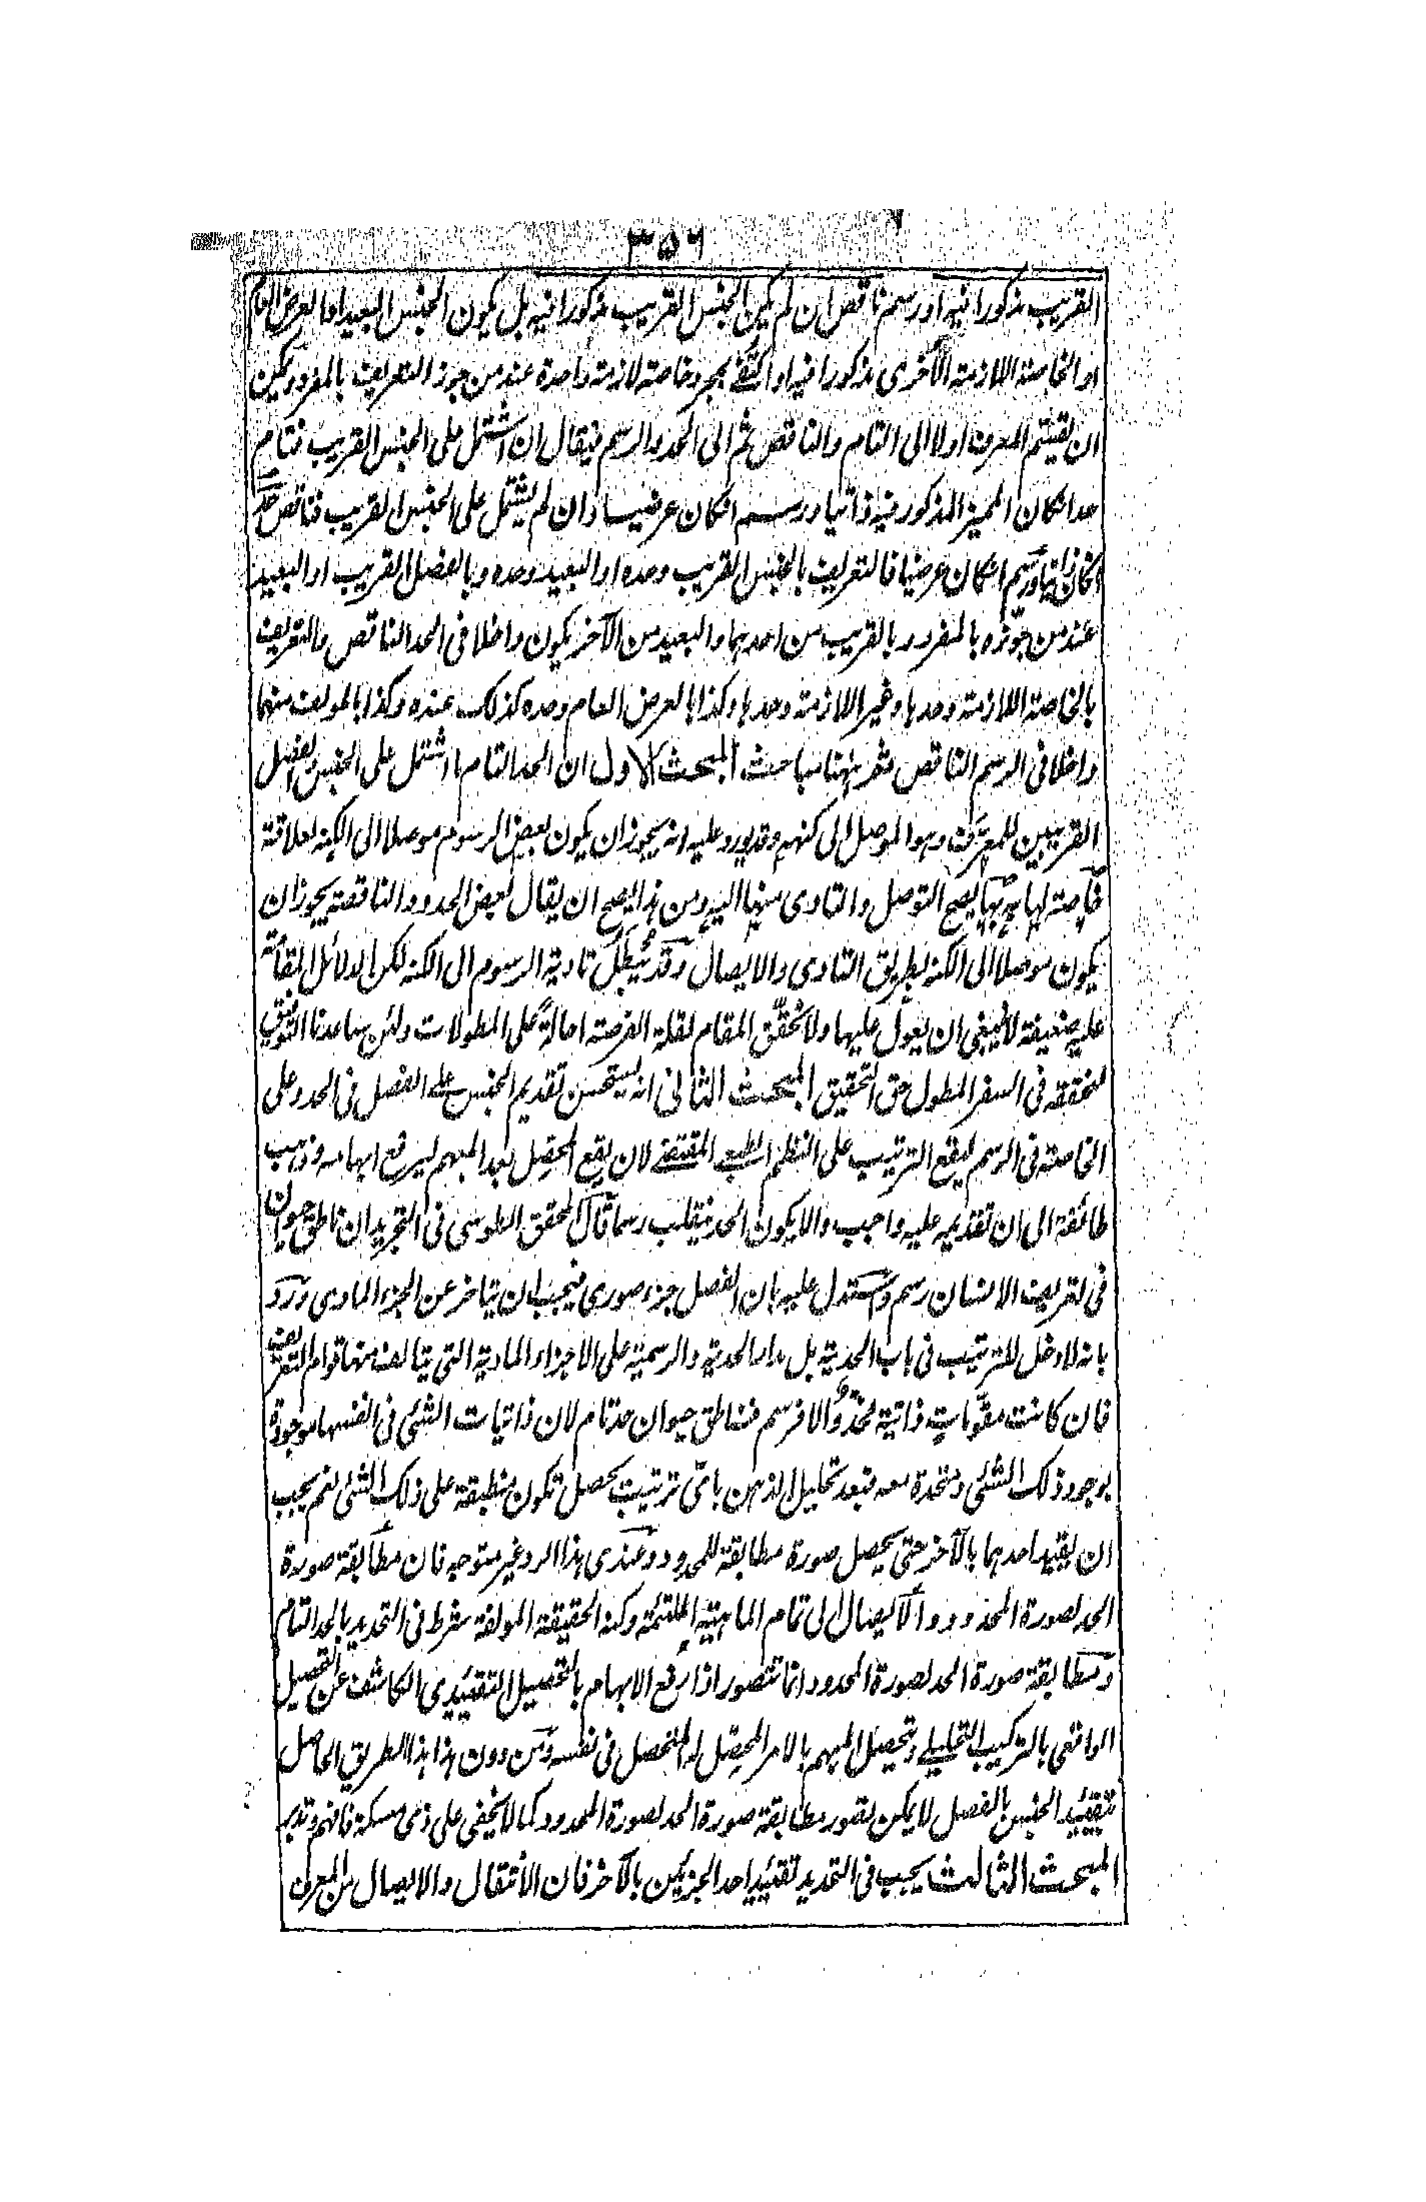 ٣٥٦
القريب مذكورا فيه او رسم ناقص ان لم يكن الجنس القريب مذكورا فيه بل يكون الجنس البعيد او العرض العام
او الخاصة اللازمة الاخرى مذكورا فيه او اكتفے بمجرد خاصة لازمة واحدة عند من جوز التعريف بالمفرد ويمكن
ان يقسم المعرف اولا الى التام والناقص ثم الى الحد والرسم فيقال ان اشتمل على الجنس القريب فتام
حد انكان المميز المذكور فيه ذاتيا ورسم انكان عرضيا وان لم يشتمل على الجنس القريب فناقص حد
انكان ذاتيا ورسم انكان عرضيا فالتعريف بالجنس القريب وحده او البعيد وحده وبالفصل القريب او البعيد
عند من جوّزه بالمفرد وبالقريب من احدهما والبعيد من الآخر يكون داخلا فى الحد الناقص والتعريف
بالخاصة اللازمة وحدها وغير اللازمة وحدها وكذا بالعرض العام وحده كذلك عنده وكذا بالمولف منهما
داخلا فى الرسم الناقص ثم ههنا مباحث المبحث الاول ان الحد التام ما اشتمل على الجنس والفصل
القريبين للمعرَّف وهو الموصل الى كنهه وقد يورد عليه انه يجوز ان يكون بعض الرسوم موصلا الى الكنه لعلاقة
خاصة لها به بها يصح التوصل والتادى منها اليه ومن هذا يصح ان يقال بعض الحدود الناقصة يجوز ان
يكون موصلا الى الكنه بطريق التادى والايصال وقد يُبطَل تادية الرسوم الى الكنه لكن الدلائل المقامة
عليه ضعيفة لا ينبغى ان يعول عليها ولا نُحقّق المقام لقلة الفرصة احالةً على المطولات ولئن ساعدنا التوفيق
لنحققه فى السفر المطول حق التحقيق المبحث الثانى انه يستحسن تقديم الجنس علے الفصل فى الحد وعلى
الخاصة فى الرسم ليقع الترتيب على النظم الطبعے المقتضے لان يقع المحصِل بعد المبهم ليرفع ابهامه وذهب
طائفة الى ان تقديمه عليه واجب والا يكون الحد ينقلب رسما قال المحقق الطوسى فى التجريد ان ناطق حيوان
فى تعريف الانسان رسم واستدل عليه بان الفصل جزء صورى فيجب ان يتاخر عن الجزء المادى ورد
بانه لا دخل للترتيب فى باب الحدية بل مدار الحدية والرسمية على الاجزاء المادية التى يتالف منها قوام التعريف
فان كانت مقوّماتٍ ذاتية فحدٌّ والا فرسم فناطق حيوان حد تام لان ذاتيات الشئ فى انفسها موجودة
بوجود ذلك الشئ ومتحدة معه فبعد تحليل الذهن باىّ ترتيب يحصل تكون منطبقة على ذلك الشئ نعم يجب
ان يقيد احدهما بالآخر حتى يحصل صورة مطابقة للمحدود وعندى هذا الرد غير متوجه فان مطابقة صورة
الحد لصورة المحدود والايصال الى تمام الماهية الملتئمة وكنه الحقيقة المولفة شرط فى التحديد بالحد التام
ومطابقة صورة الحد لصورة المحدود انما تتصور اذا رفع الابهام بالتحصيل التقييدى الكاشف عن التحصيل
الواقعى بالتركيب التحليلے وتحصيل المبهم بالامر المحصِّل له المتحصل فى نفسه ومن دون هذا الطريق الحاصل
بتقييد الجنس بالفصل لا يمكن تصور مطابقة صورة الحد لصورة المحدود كما لا يخفى على ذى مسكة فافهم وتدبر
المبحث الثالث يجب فى التحديد تقييد احد الجزئين بالآخر فان الانتقال والايصال من المعرف